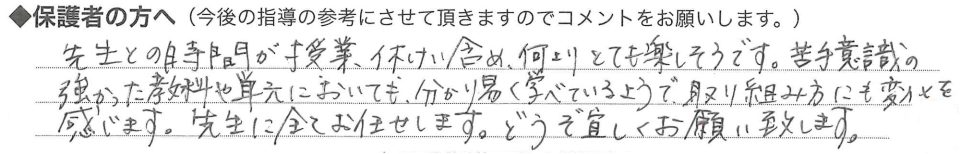 ◆保護者の方へ（今後の指導の参考にさせて頂きますのでコメントをお願いします。）
先生との時間が授業、休けい含め、何よりとても楽しそうです。苦手意識の
強かった教科や単元においても、分かり易く学べているようで取り組み方にも変化を
感じます。先生に全てお任せします。どうぞ宜しくお願い致します。